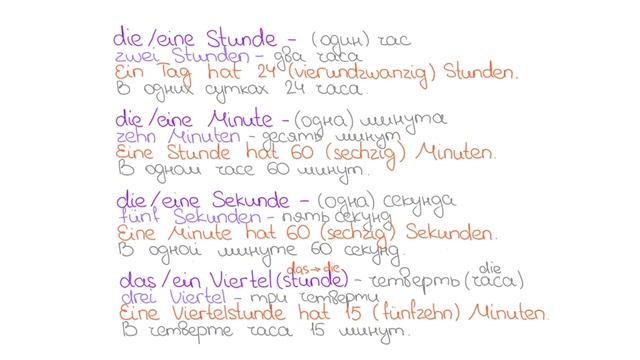 die/eine Stunde – (один) час
zwei Stunden – два часа
Ein Tag hat 24 (vierundzwanzig) Stunden.
В одних сутках 24 часа.
die/eine Minute – (одна) минута
zehn Minuten – десять минут
Eine Stunde hat 60 (sechzig) Minuten.
В одном часе 60 минут.
die/eine Sekunde – (одна) секунда
fünf Sekunden – пять секунд
Eine Minute hat 60 (sechzig) Sekunden.
В одной минуте 60 секунд.
das → die die
das/ein Viertel(stunde) – четверть (часа)
drei Viertel – три четверти
Eine Viertelstunde hat 15 (fünfzehn) Minuten.
В четверте часа 15 минут.